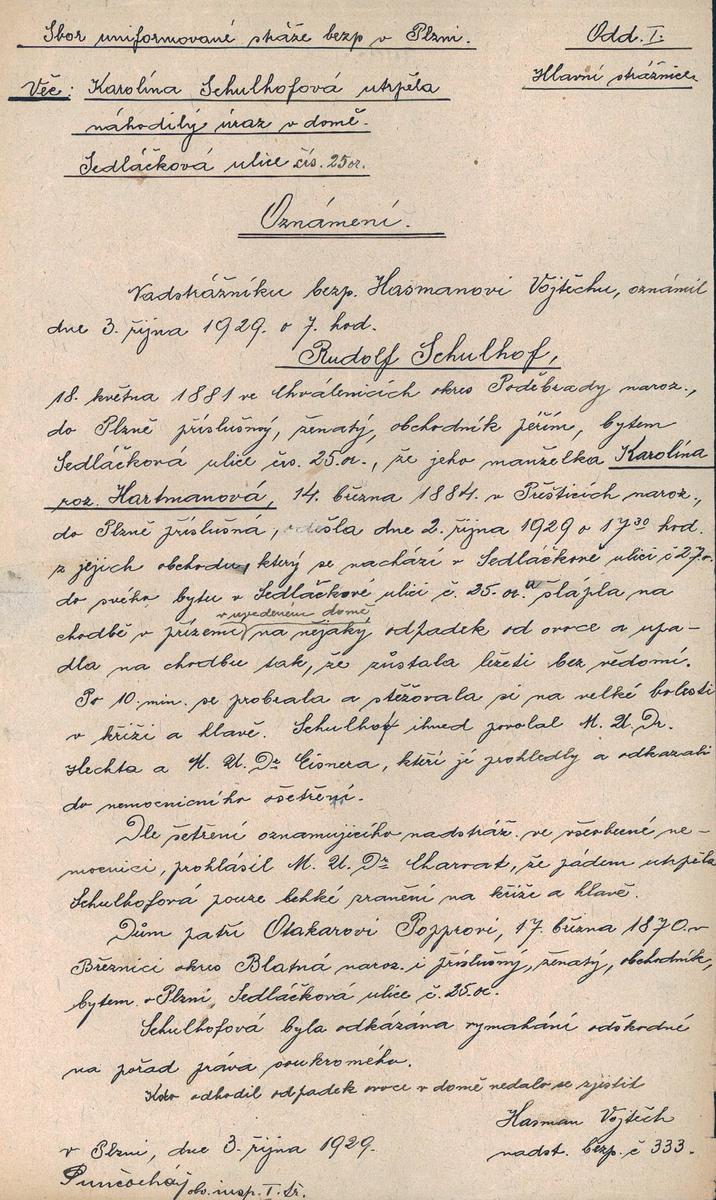 Sbor uniformované stráže bezp v Plzni. Odd. I.
Hlavní strážnice.
Věc: Karolína Schulhofová utrpěla
náhodilý úraz v domě.
Sedláčková ulice čís. 25 or.
Oznámení.
Nadstrážníku bezp. Hasmanovi Vojtěchu, oznámil
dne 3. října 1929. o 7. hod.
Rudolf Schulhof,
18. května 1881 ve Chválenicích okres Poděbrady naroz.,
do Plzně příslušný, ženatý, obchodník peřím, bytem
Sedláčková ulice čís. 25. or., že jeho manželka Karolína
roz. Hartmanová, 14. března 1884. v Přešticích naroz.,
do Plzně příslušná, odešla dne 2. října 1929 o 17 30 hod.
z jejich obchodu, který se nachází v Sedláčkové ulici č 27 o.
do svého bytu v Sedláčkové ulici č. 25. or. a šlápla na
v uvedeném domě
chodbě v přízemí na nějaký odpadek od ovoce a upa-
dla na chodbu tak, že zůstala ležeti bez vědomí.
Po 10. min. se probrala a stěžovala si na velké bolesti
v kříži a hlavě. Schulhof ihned povolal M. U. Dr.
Hechta a M. U. Dr Eisnera, kteří jí prohledly a odkazali
do nemocnicního ošetření.
Dle šetření oznamujícího nadstráž. ve všeobecné ne-
mocnici, prohlásil M. U. Dr Charvat, že pádem utrpěla
Schulhofová pouze lehké zranění na kříže a hlavě.
Dům patří Otakarovi Popprovi, 17. března 1870. v
Březnici okres Blatná naroz. i příslušný, ženatý, obchodník,
bytem v Plzni, Sedláčková ulice č. 25. or.
Schulhofová byla odkázána vymahání odškodné
na pořad práva soukromého.
Kdo odhodil odpadek ovoce v domě nedalo se zjistit
Hasman Vojtěch
v Plzni, dne 3. října 1929. nadst. bezp. č 333.
Punčochář ob. insp. I. tř.